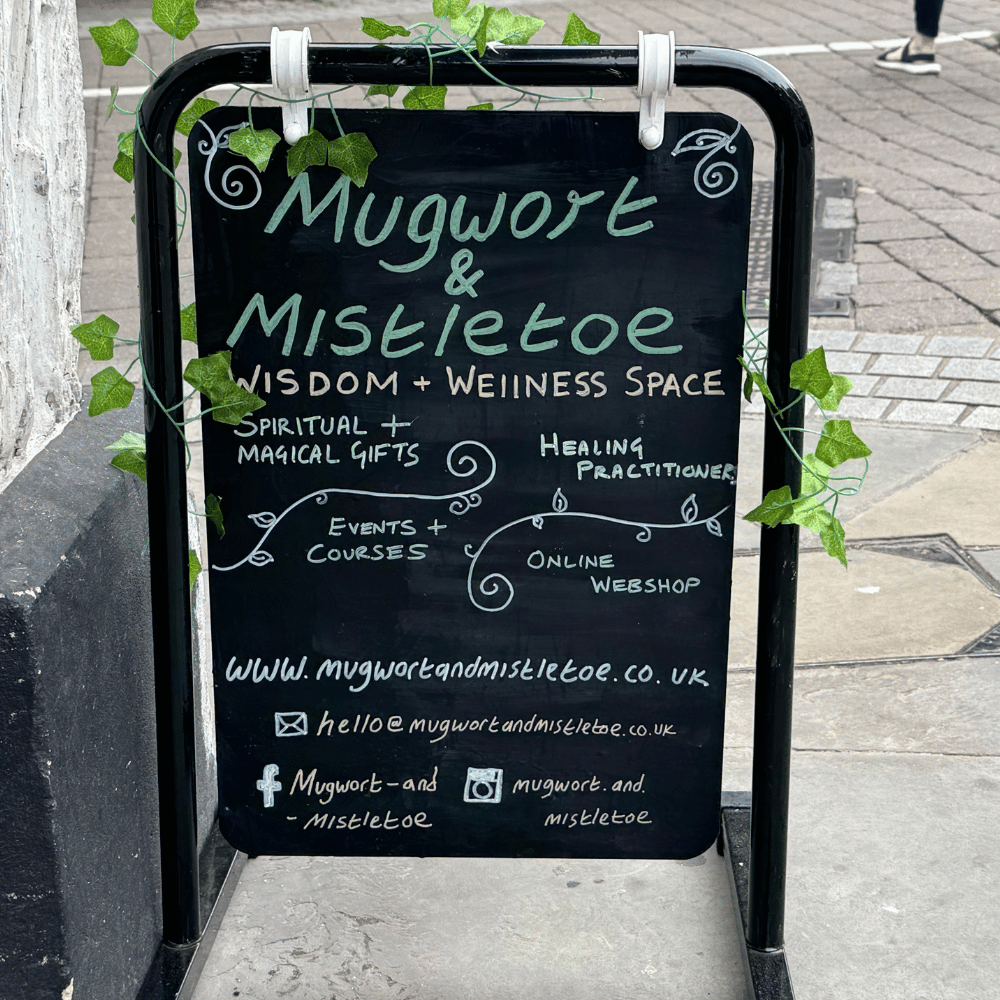 Mugwort
&
Mistletoe
WISDOM + WEllNESS SPACE
SPIRITUAL +
MAGICAL GIFTS
HEALING
PRACTITIONERS
EVENTS +
COURSES
ONLINE
WEBSHOP
www.mugwortandmistletoe.co.uk
hello@mugwortandmistletoe.co.uk
Mugwort-and
-Mistletoe
mugwort.and.
mistletoe